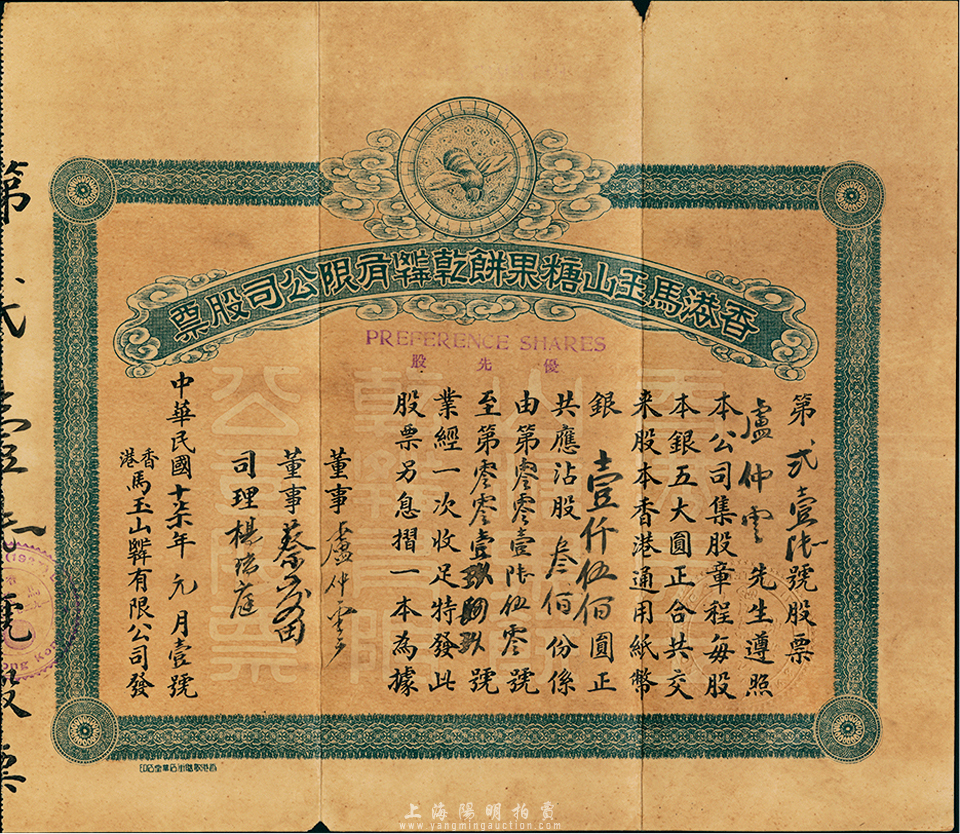 香港馬玉山糖果餅乾㍿有限公司股票
PREFERENCE SHARES
優先股
第弍壹陸號股票
盧仲雲先生遵照
本公司集股章程每股
本銀五大圓正合共交
来股本香港通用紙幣
銀壹仟伍佰圓正
共應沾股叁佰份係
由第零零壹陸伍零號
至第零零壹玖肆玖號
業經一次收足特發此
股票另息摺一本為據
董事盧仲雲
董事蔡
司理楊
中華民國十柒年元月壹號
香港馬玉山㍿有限公司發
第弍壹陸號股票
上海陽明拍賣
www.yangmingauction.com